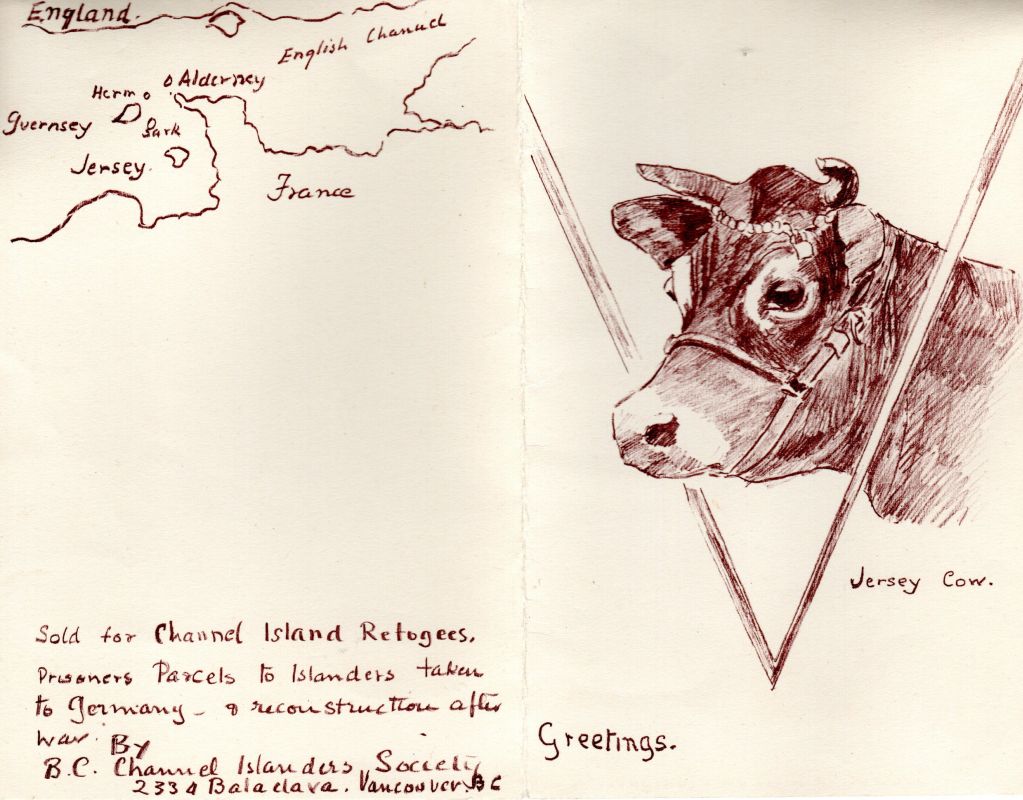 England.
English Channel
Alderney
Herm
Guernsey
Sark
Jersey.
France
Sold for Channel Island Refugees.
Prisoners Parcels to Islanders taken
to Germany - & reconstruction after
war. By
B.C. Channel Islanders Society
2334 Balaclava. Vancouver BC
Jersey Cow.
Greetings.